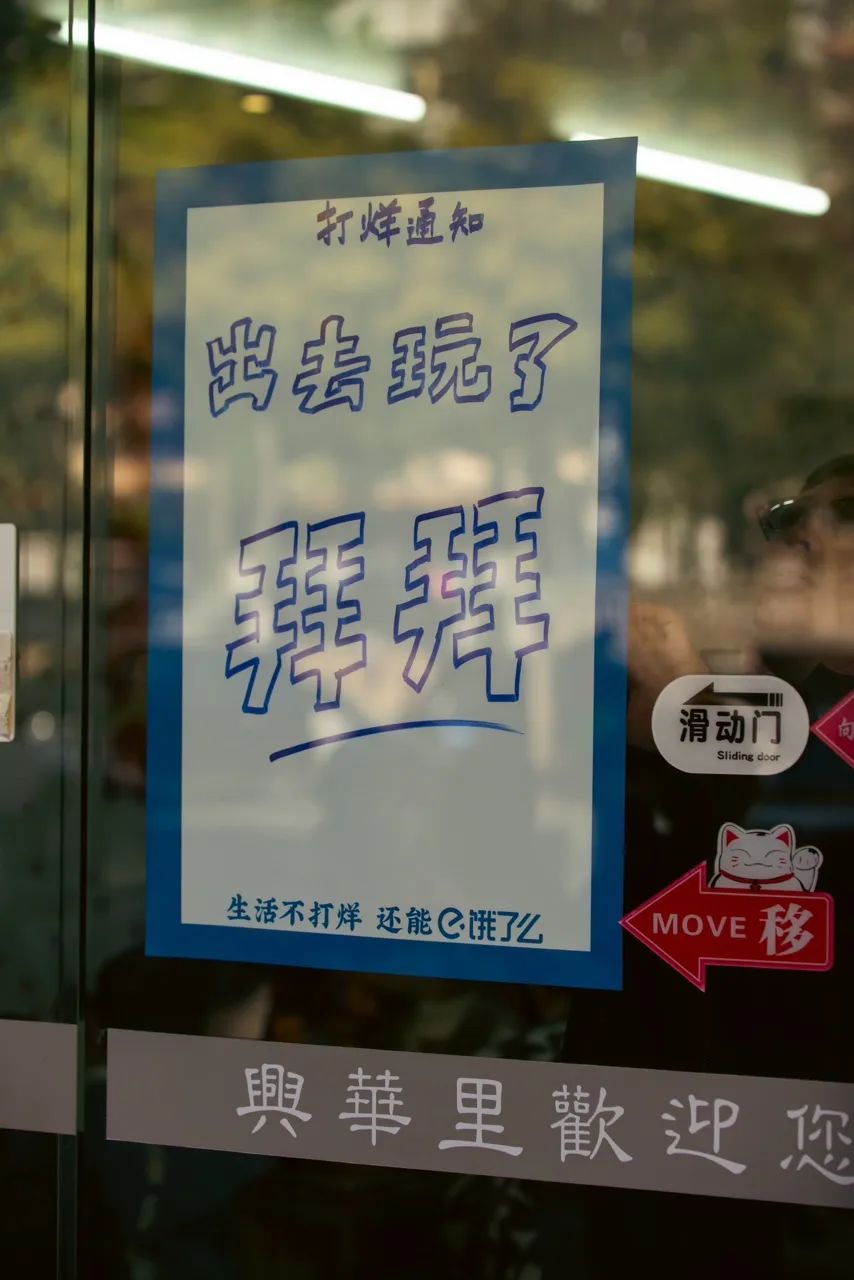 打烊通知
出去玩了
拜拜
生活不打烊 还能饿了么
滑动门
Sliding door
向
MOVE 移
興華里歡迎您